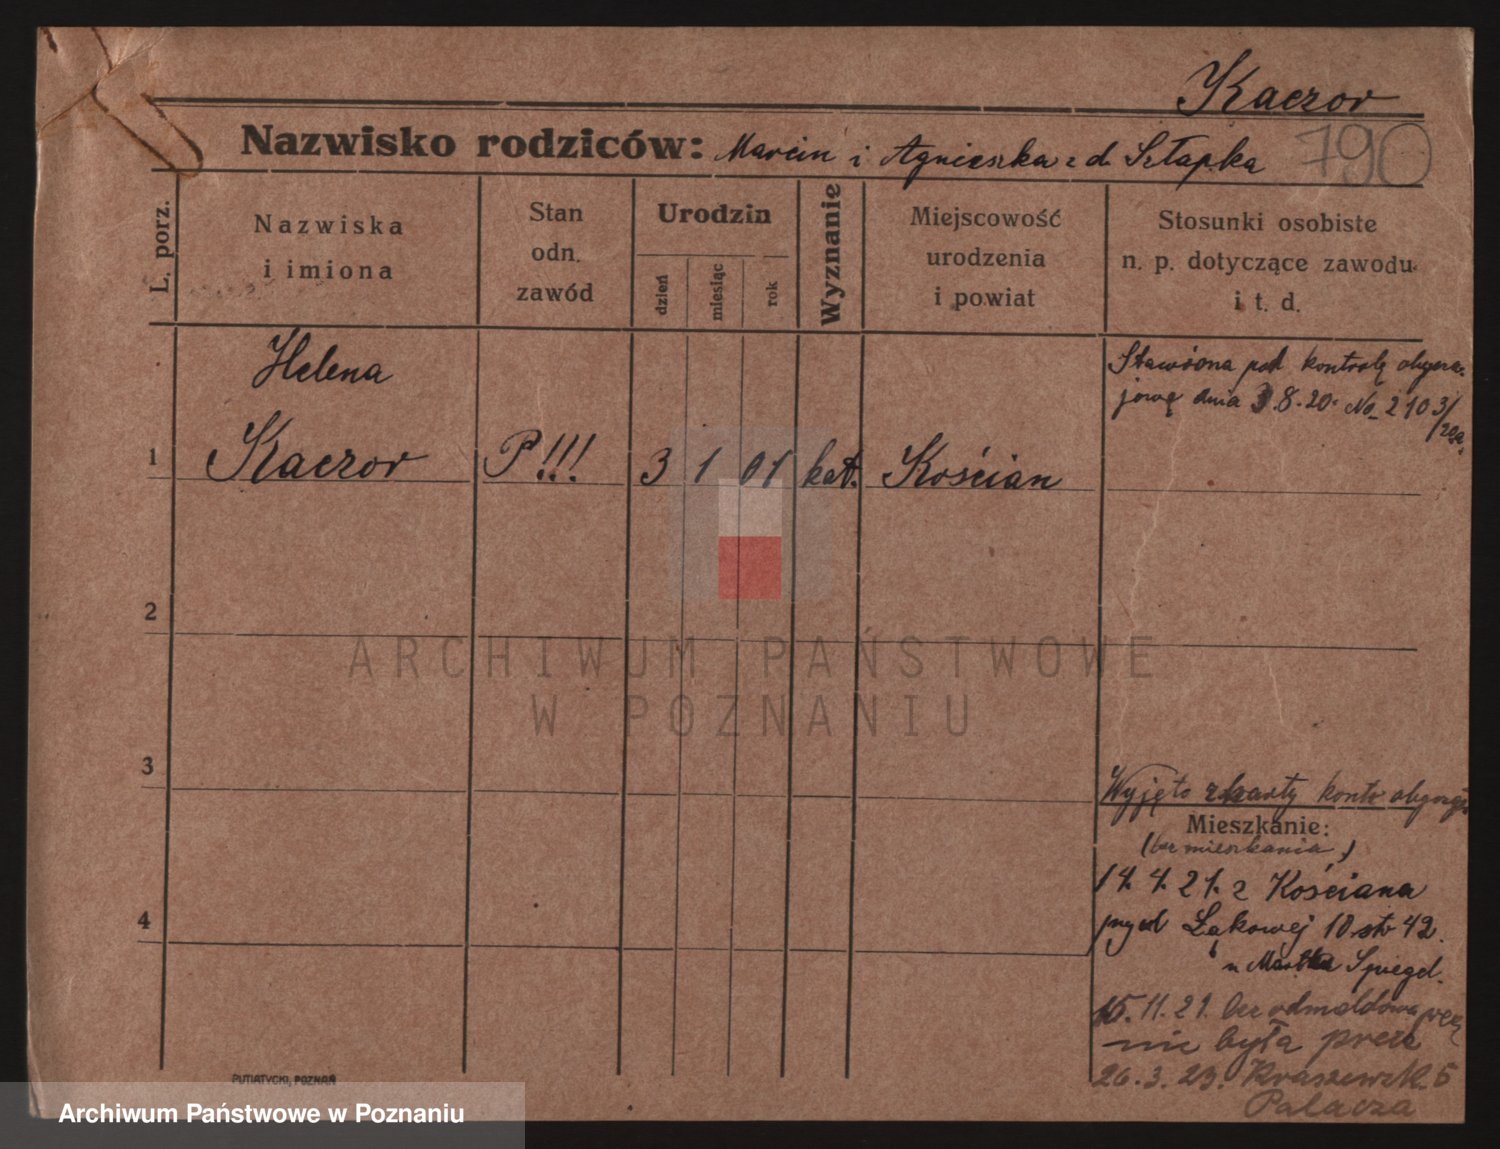 Kaczor
790
Nazwisko rodziców: Marcin i Agnieszka z d. Szłapka
L. porz.
Nazwiska
i imiona
Stan
odn.
zawód
Urodzin
dzień
miesiąc
rok
Wyznanie
Miejscowość
urodzenia
i powiat
Stosunki osobiste
n. p. dotyczące zawodu
i t. d.
Helena
1 Kaczor P!!! 3 1 01 kat. Kościan
Stawiona pod kontrolę obycza-
jową dnia 3.8.20. No 2103/
20a.
2
3
4
Wyjęto z karty
Mieszkanie:
(bez mieszkania)
14.4.21. z Kościana
Łąkowej 10 str 42.
u Spiegel.
15.11.21. bez
nic była przez
26.3.23. Kraszewsk. 5
Palacza
PUTIATYCKI, POZNAŃ
ARCHIWUM PAŃSTWOWE
W POZNANIU
Archiwum Państwowe w Poznaniu